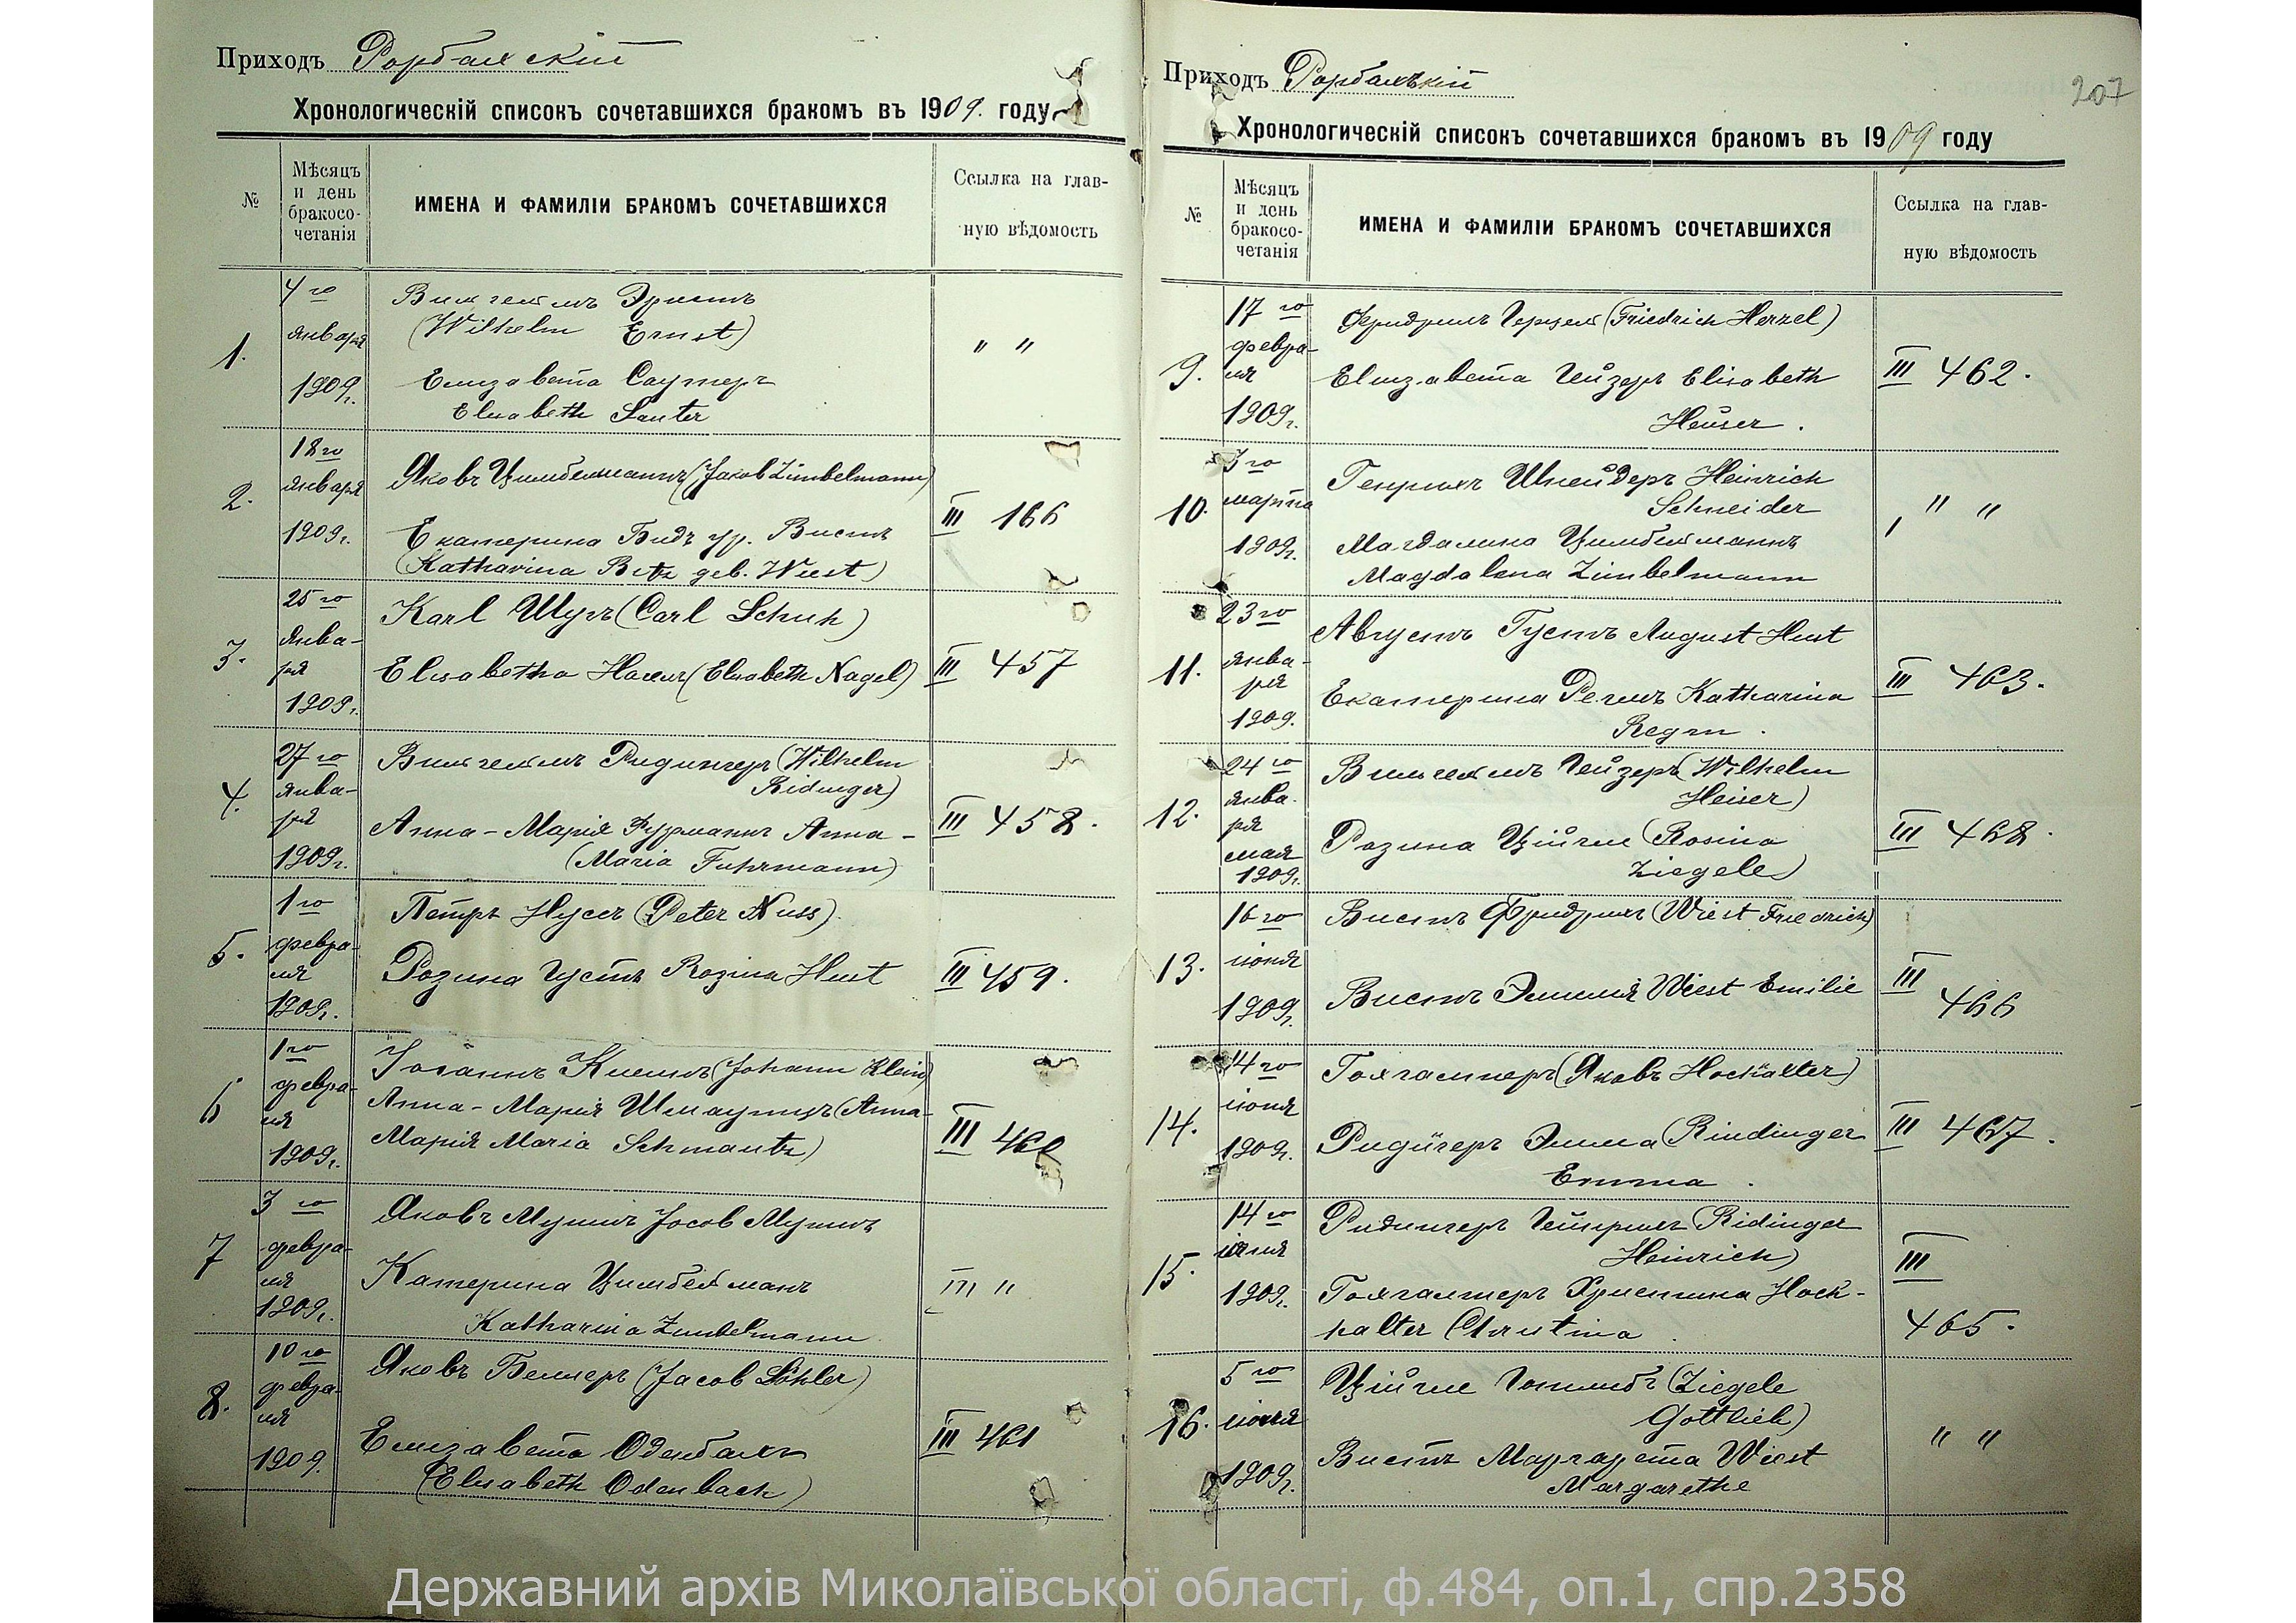 Приходъ Рорбахскій
Хронологическій списокъ сочетавшихся бракомъ въ 1909. году
№
Мѣсяцъ и день бракосо-четанія
ИМЕНА И ФАМИЛІИ БРАКОМЪ СОЧЕТАВШИХСЯ
Ссылка на глав-
ную вѣдомость
1.
4го
января
1909г.
Вильгельмъ Эрнстъ
(Wilhelm Ernst)
Елизавета Саутеръ
Elisabeth Sauter
" "
2.
18го
января
1909г.
Яковъ Цимбельманъ (Jacob Zimbelmann)
Екатерина ур. Вистъ
(Katharina geb. Wiest)
III 166
3.
25го
Янва-
ря
1909г.
Karl Шухъ (Carl Schuh)
Elisabetha Нагель (Elisabeth Nagel)
III 457
4.
27го
Янва-
ря
1909г.
Вильгельмъ Ридингеръ (Wilhelm
Ridinger)
Анна-Марія Фурманъ Anna-
(Maria Fuhrmann)
III 458.
5.
1го
февра-
ля
1909г.
Петръ Нуссъ (Peter Nuss).
Розина Густъ Rosina Hust
III 459.
6
1го
февра-
ля
1909г.
Іоганнъ Клейнъ (Johann Klein)
Анна-Марія Шмаутцъ (Anna-
Марія Maria Schmautz)
III 460
7
3го
февра-
ля
1909г.
Яковъ Jacob
Катерина Цимбельманъ
Katharina Zimbelmann
III "
8.
10го
февра-
ля
1909.
Яковъ (Jacob)
Елизавета Оденбахъ
(Elisabeth Odenbach)
III 461
Приходъ Рорбахскій
207
Хронологическій списокъ сочетавшихся бракомъ въ 1909 году
№
Мѣсяцъ и день бракосо-четанія
ИМЕНА И ФАМИЛІИ БРАКОМЪ СОЧЕТАВШИХСЯ
Ссылка на глав-
ную вѣдомость
9.
17го
февра-
ля
1909г.
Фридрихъ Герцель (Friedrich Herzel)
Елизавета Гейзеръ Elisabeth
Heuser.
III 462.
10.
3го
марта
1909г.
Генрихъ Шнейдеръ Heinrich
Schneider
Магдалина Цимбельманнъ
Magdalena Zimbelmann
" "
11.
23го
Янва-
ря
1909.
Августъ Густъ August Hust
Екатерина Регмъ Katharina
Regm.
III 463.
12.
24го
Янва-
ря
мая
1909г.
Вильгельмъ Гейзеръ (Wilhelm
Heiser)
Розина Ційгле (Rosina
Ziegele)
III 468.
13.
16го
іюня
1909г.
Вистъ Фридрихъ (Wiest Friedrich)
Вистъ Эмилія Wiest Emilie
III
466
14.
14го
іюня
1909г.
Гохгалтеръ (Яковъ Hochalter)
Ридигеръ Эмма (Rindinger
Emma.
III 467.
15.
14го
1909г.
Ридингеръ Гейнрихъ (Ridinger
Heinrich)
Гохгалтеръ Христина Hoch-
halter Christina.
III
465.
16.
5го
1909г.
Ційгле Готлибъ (Ziegele
Gottlieb)
Вистъ Маргарета Wiest
Margarethe
" "
Державний архів Миколаївської області, ф.484, оп.1, спр.2358